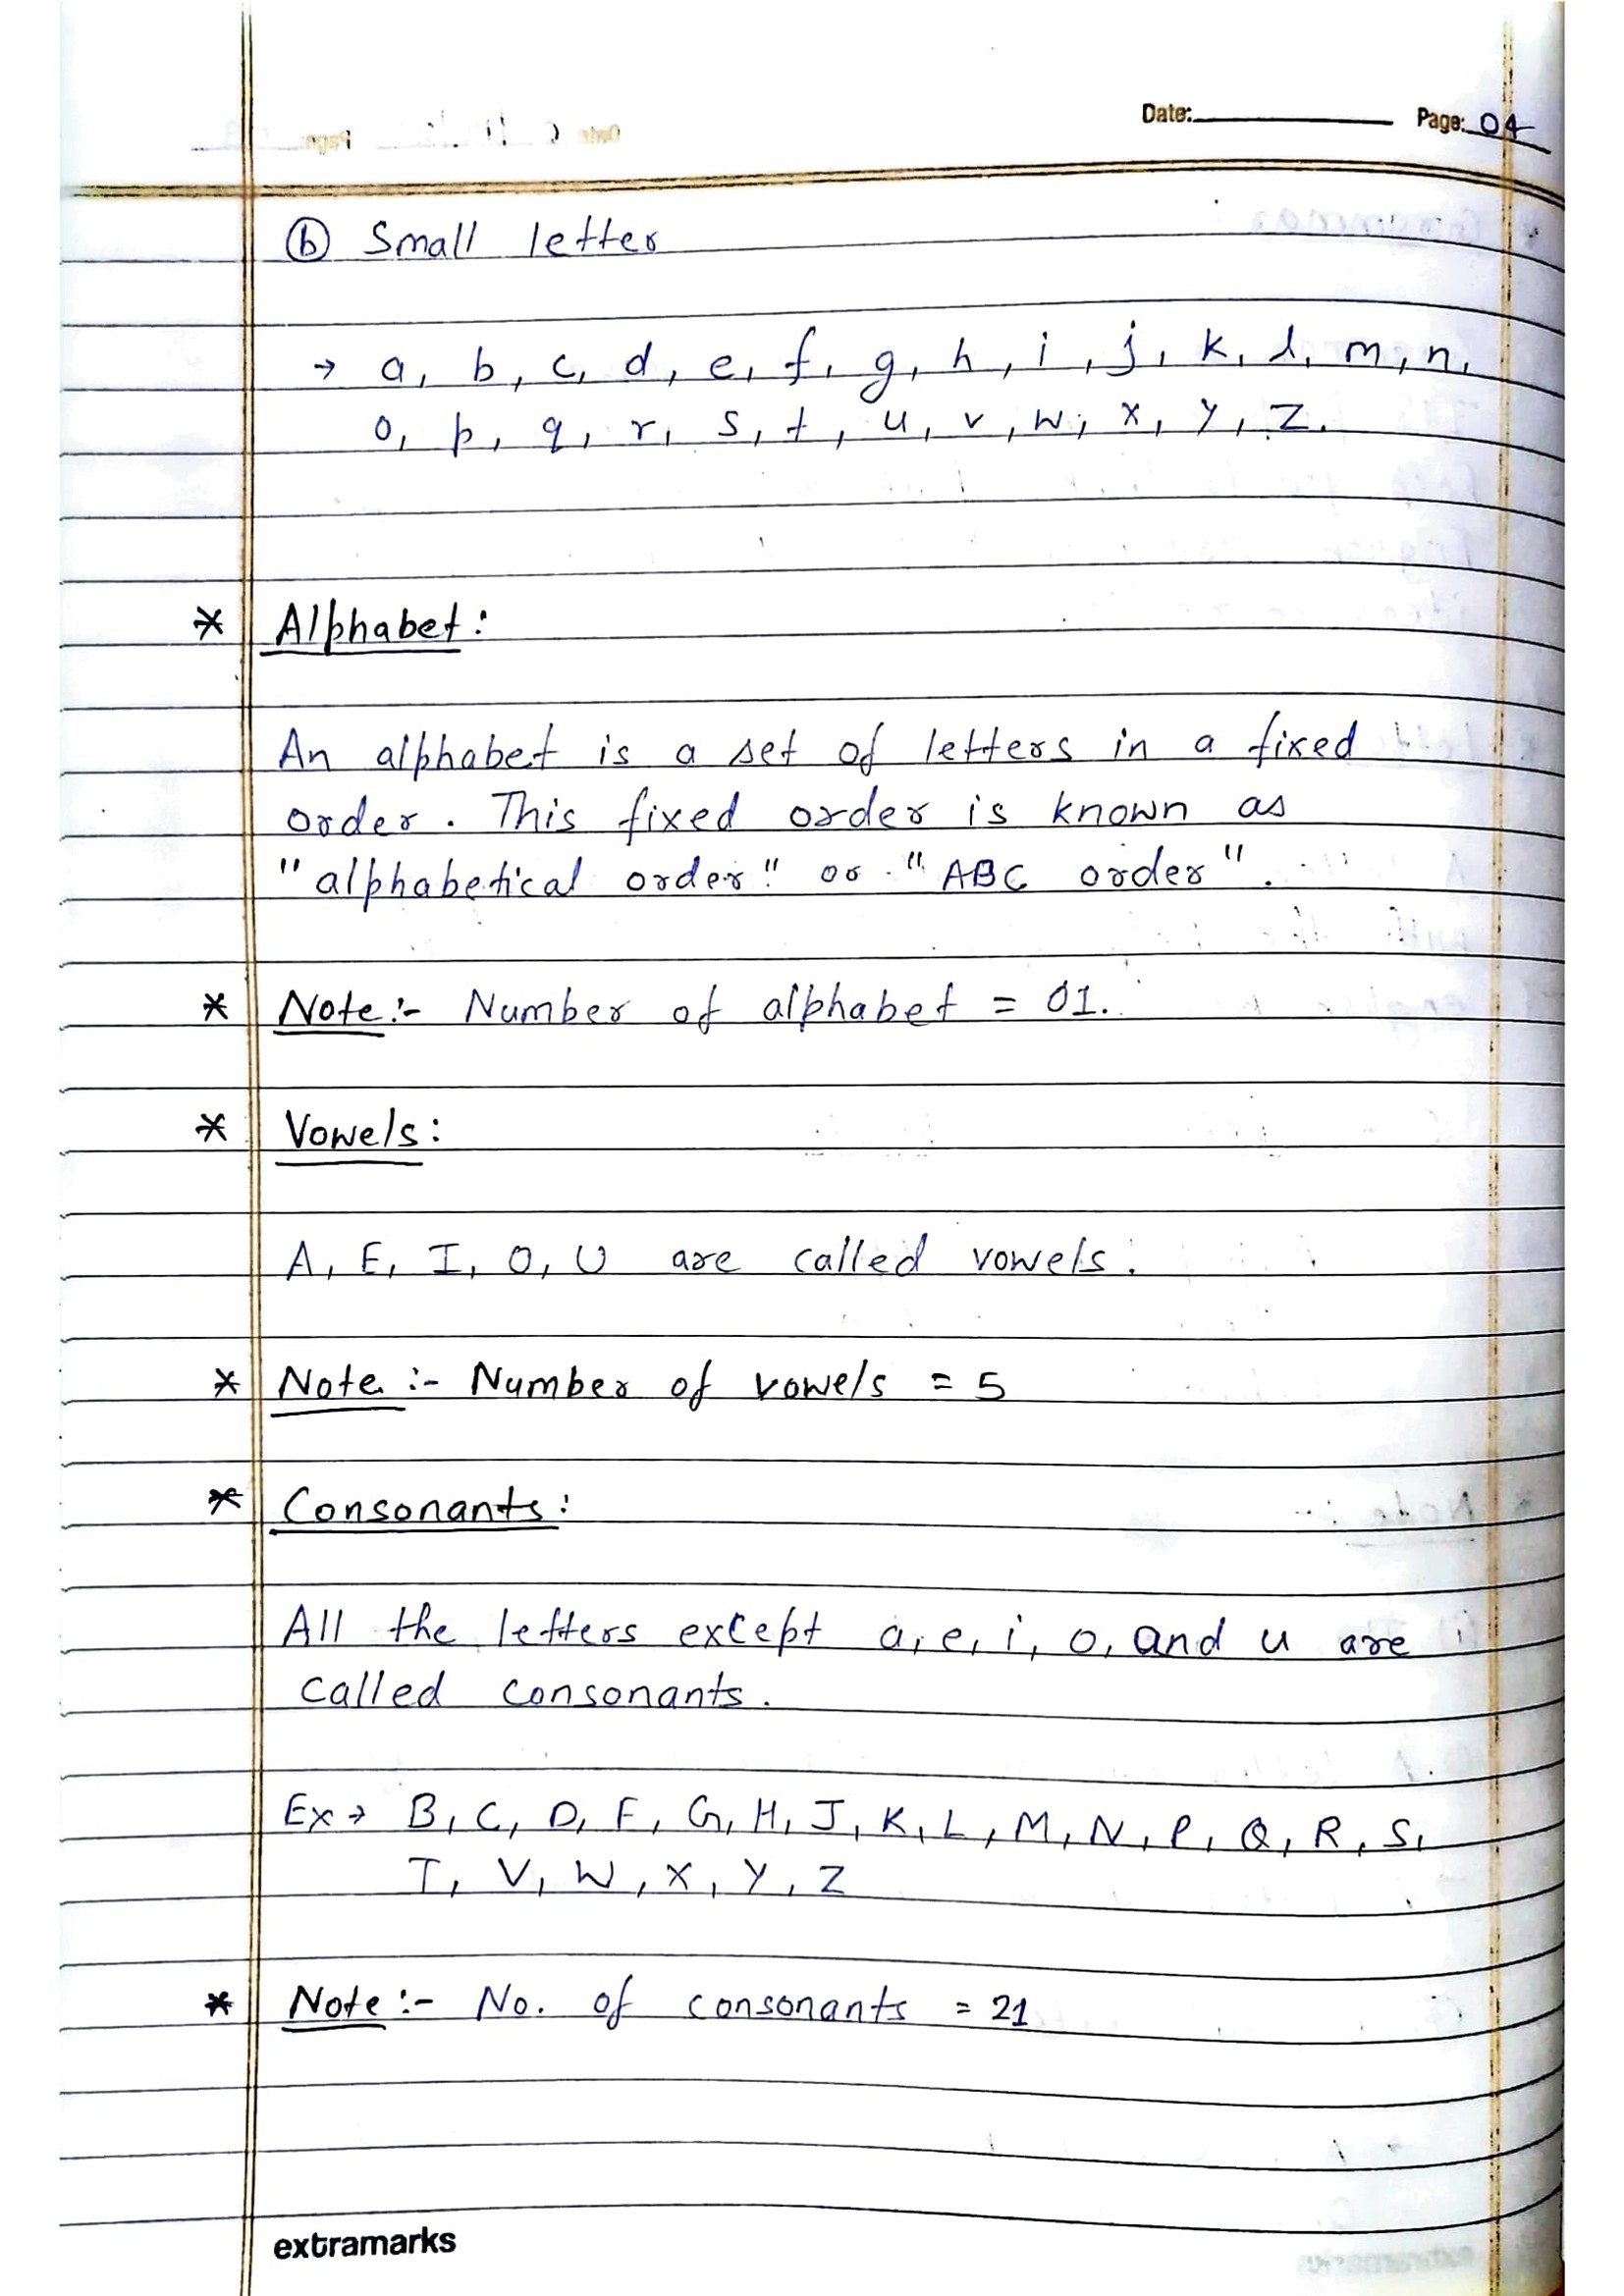 Date: Page: 04
ⓑ Small letter
→ a, b, c, d, e, f, g, h, i, j, k, l, m, n,
o, p, q, r, s, t, u, v, w, x, y, z.
* Alphabet:
An alphabet is a set of letters in a fixed
order. This fixed order is known as
"alphabetical order" or "ABC order".
* Note:- Number of alphabet = 01.
* Vowels:
A, E, I, O, U are called vowels.
* Note :- Number of vowels = 5
* Consonants:
All the letters except a, e, i, o, and u are
called consonants.
Ex → B, C, D, F, G, H, J, K, L, M, N, P, Q, R, S,
T, V, W, X, Y, Z
* Note :- No. of consonants = 21
extramarks